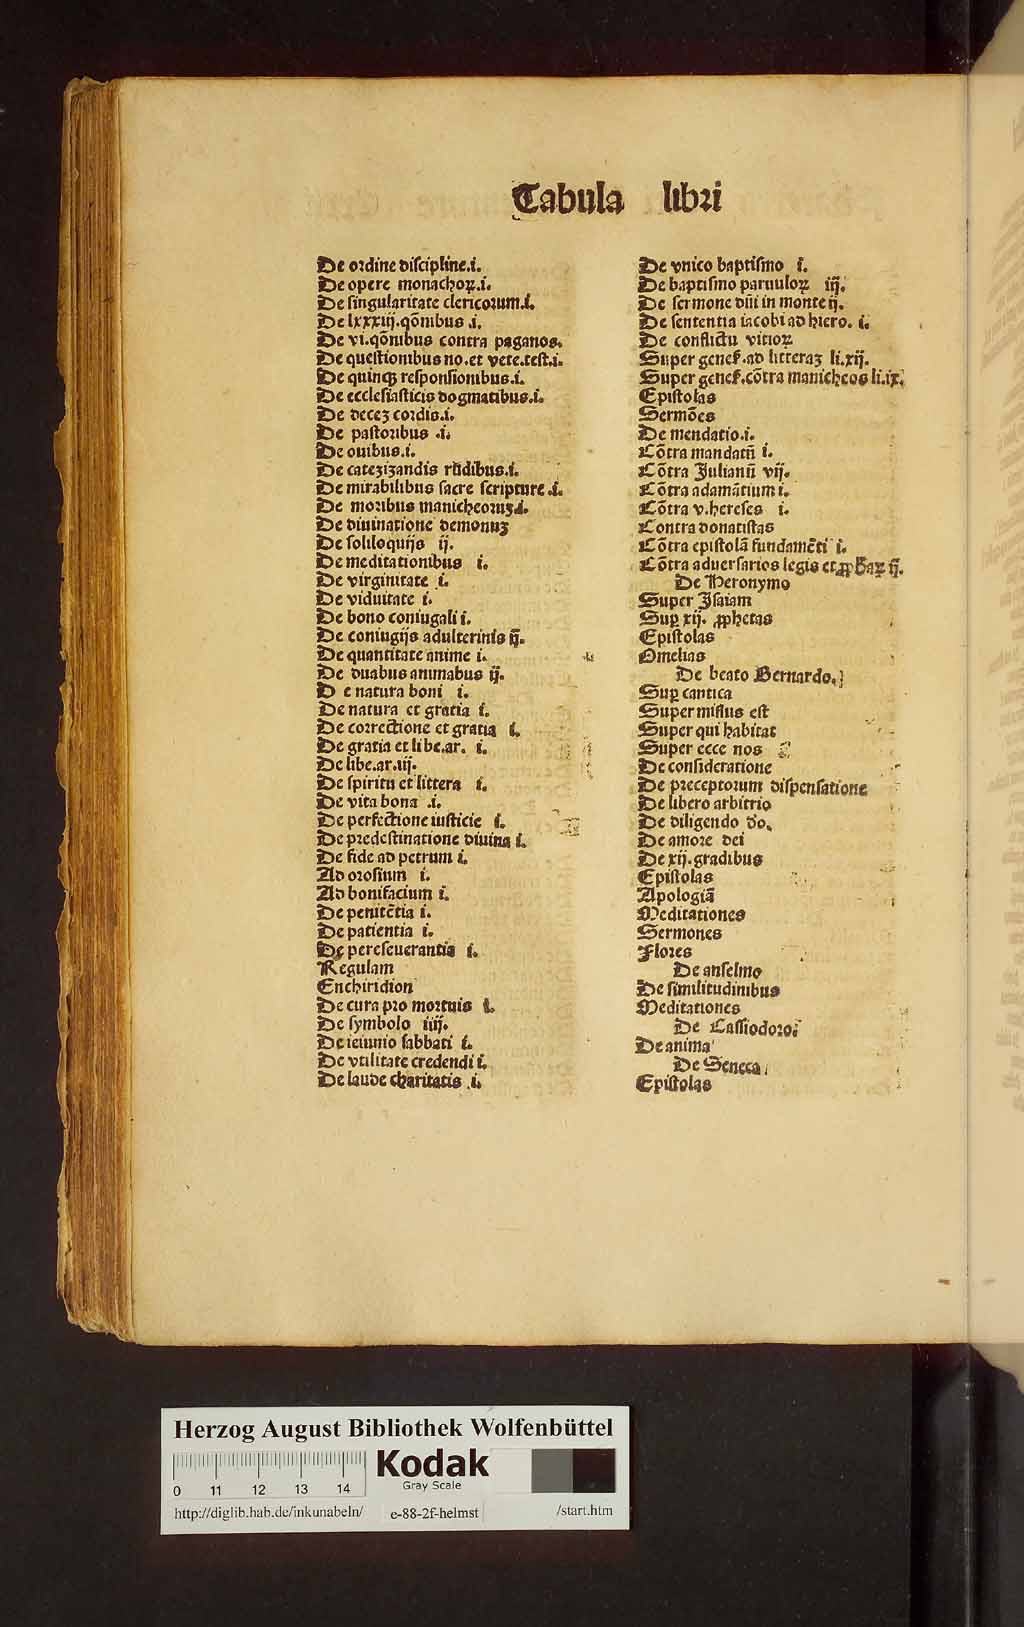 Tabula libri
De ordine discipline.i.
De opere monachoꝝ.i.
De singularitate clericorum.i.
De lxxxiij.q̄onibus .i.
De vi.q̄onibus contra paganos.
De questionibus no.et vete.test.i.
De quinqꝫ responsionibus.i.
De ecclesiasticis dogmatibus.i.
De deceꝫ cordis.i.
De pastoribus .i.
De ouibus.i.
De catezizandis rudibus.i.
De mirabilibus sacre scripture .i.
De moribus manicheoruꝫ.i.
De diuinatione demonuꝫ
De soliloquijs ij.
De meditationibus i.
De virginitate i.
De viduitate i.
De bono coniugali i.
De coniugijs adulterinis ij.
De quantitate anime i.
De duabus animabus ij.
D e natura boni i.
De natura et gratia i.
De correctione et gratia i.
De gratia et libe.ar. i.
De libe.ar.iij.
De spiritu et littera i.
De vita bona .i.
De perfectione iusticie i.
De predestinatione diuina i.
De fide ad petrum i.
Ad orosium i.
Ad bonifacium i.
De penitētia i.
De patientia i.
De perseuerantia i.
Regulam
Enchiridion
De cura pro mortuis i.
De symbolo iiij.
De ieiunio sabbati i.
De vtilitate credendi i.
De laude charitatis .i.
De vnico baptismo i.
De baptismo paruuloꝝ iij.
De sermone dn̄i in monte ij.
De sententia iacobi ad hiero. i.
De conflictu vitioꝝ
Super genes.ad litteraꝫ li.xij.
Super genes.cōtra manicheos li.ix.
Epistolas
Sermōes
De mendatio.i.
Cōtra mandatū i.
Cōtra Julianū vij.
Cōtra adamātium i.
Cōtra v.hereses i.
Contra donatistas
Cōtra epistolā fundamēti i.
Cōtra aduersarios legis et ꝓphaꝝ ij.
De Heronymo
Super Isaiam
Suꝑ xij. ꝓphetas
Epistolas
Omelias
De beato Bernardo.
Suꝑ cantica
Super missus est
Super qui habitat
Super ecce nos
De consideratione
De preceptorum dispensatione
De libero arbitrio
De diligendo do.
De amore dei
De xij.gradibus
Epistolas
Apologiā
Meditationes
Sermones
Flores
De anselmo
De similitudinibus
Meditationes
De Cassiodoro.
De anima
De Seneca.
Epistolas
Herzog August Bibliothek Wolfenbüttel
Kodak
Gray Scale
0 11 12 13 14
http://diglib.hab.de/inkunabeln/ e-88-2f-helmst /start.htm